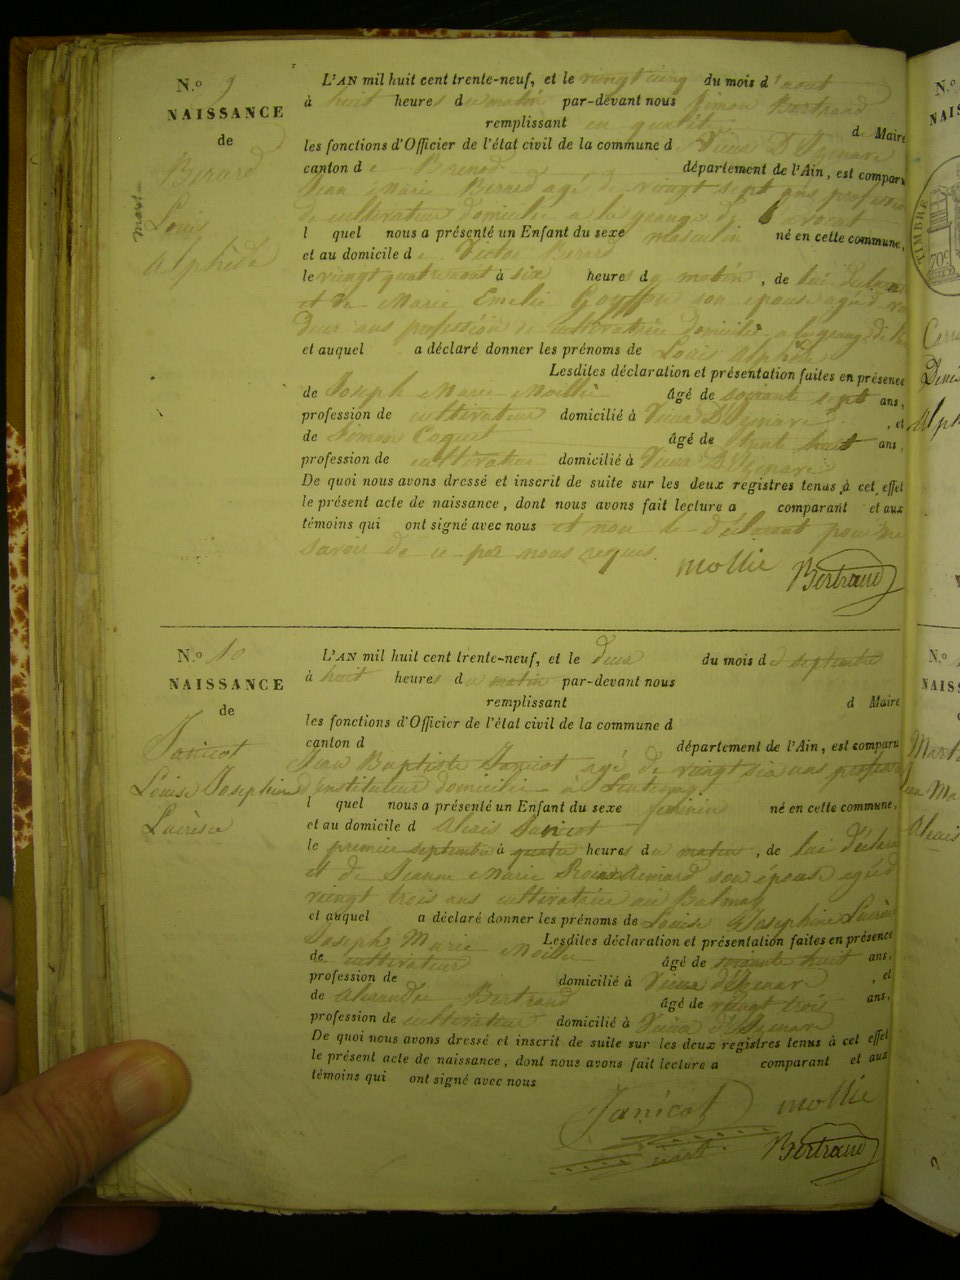 N.o 9
NAISSANCE
de
Berard
Louis
Alphése
mort
L'AN mil huit cent trente-neuf, et le vingt cinq du mois d'aout
à huit heures du matin par-devant nous Simon Bertrand
remplissant en qualité d Maire
les fonctions d'Officier de l'état civil de la commune d Vieux D'Izenave
canton de Brenod département de l'Ain, est comparu
Jean Marie Berard agé de vingt sept ans profession
de cultivateur domicilié a la grange de
l quel nous a présenté un Enfant du sexe masculin né en cette commune,
et au domicile de Victor Berard
le vingt quatre aout à six heures du matin, de lui déclarant
et de Marie Emelie son épouse agée de vingt
deux ans profession de cultivatrice domicilié a la grange de
et auquel a déclaré donner les prénoms de Louis Alphése
Lesdites déclaration et présentation faites en présence
de Joseph Marie Mollie âgé de soixante sept ans,
profession de cultivateur domicilié à Vieux D'Izenave, et
de Simon Coquet âgé de huit ans,
profession de cultivateur domicilié à Vieux D'Izenave
De quoi nous avons dressé et inscrit de suite sur les deux registres tenus à cet effet
le présent acte de naissance, dont nous avons fait lecture a comparant et aux
témoins qui ont signé avec nous et non le déclarant pour ne
savoir de ce par nous requis.
mollie Bertrand
N.o 10
NAISSANCE
de
Janicot
Louise Josephine
Lucrèse
L'AN mil huit cent trente-neuf, et le deux du mois de septembre
à huit heures du matin par-devant nous
remplissant d Maire
les fonctions d'Officier de l'état civil de la commune d
canton d département de l'Ain, est comparu
Jean Baptiste Janicot agé de vingt six ans profession
d'instituteur domicilié à
l quel nous a présenté un Enfant du sexe feminin né en cette commune,
et au domicile d Alexis Janicot
le premier septembre à quatre heures du matin, de lui déclarant
et de Jeanne Marie son épouse agée d
vingt trois ans cultivatrice au Balmay
et auquel a déclaré donner les prénoms de Louise Josephine Lucrèse
Joseph Marie Mollie Lesdites déclaration et présentation faites en présence
de cultivateur âgé de soixante huit ans,
profession de domicilié à Vieux d'Izenave, et
de Alexandre Bertrand âgé de vingt trois ans,
profession de cultivateur domicilié à Vieux d'Izenave
De quoi nous avons dressé et inscrit de suite sur les deux registres tenus à cet effet
le présent acte de naissance, dont nous avons fait lecture a comparant et aux
témoins qui ont signé avec nous
Janicot mollie
Bertrand
N.o
TIMBRE
N.o